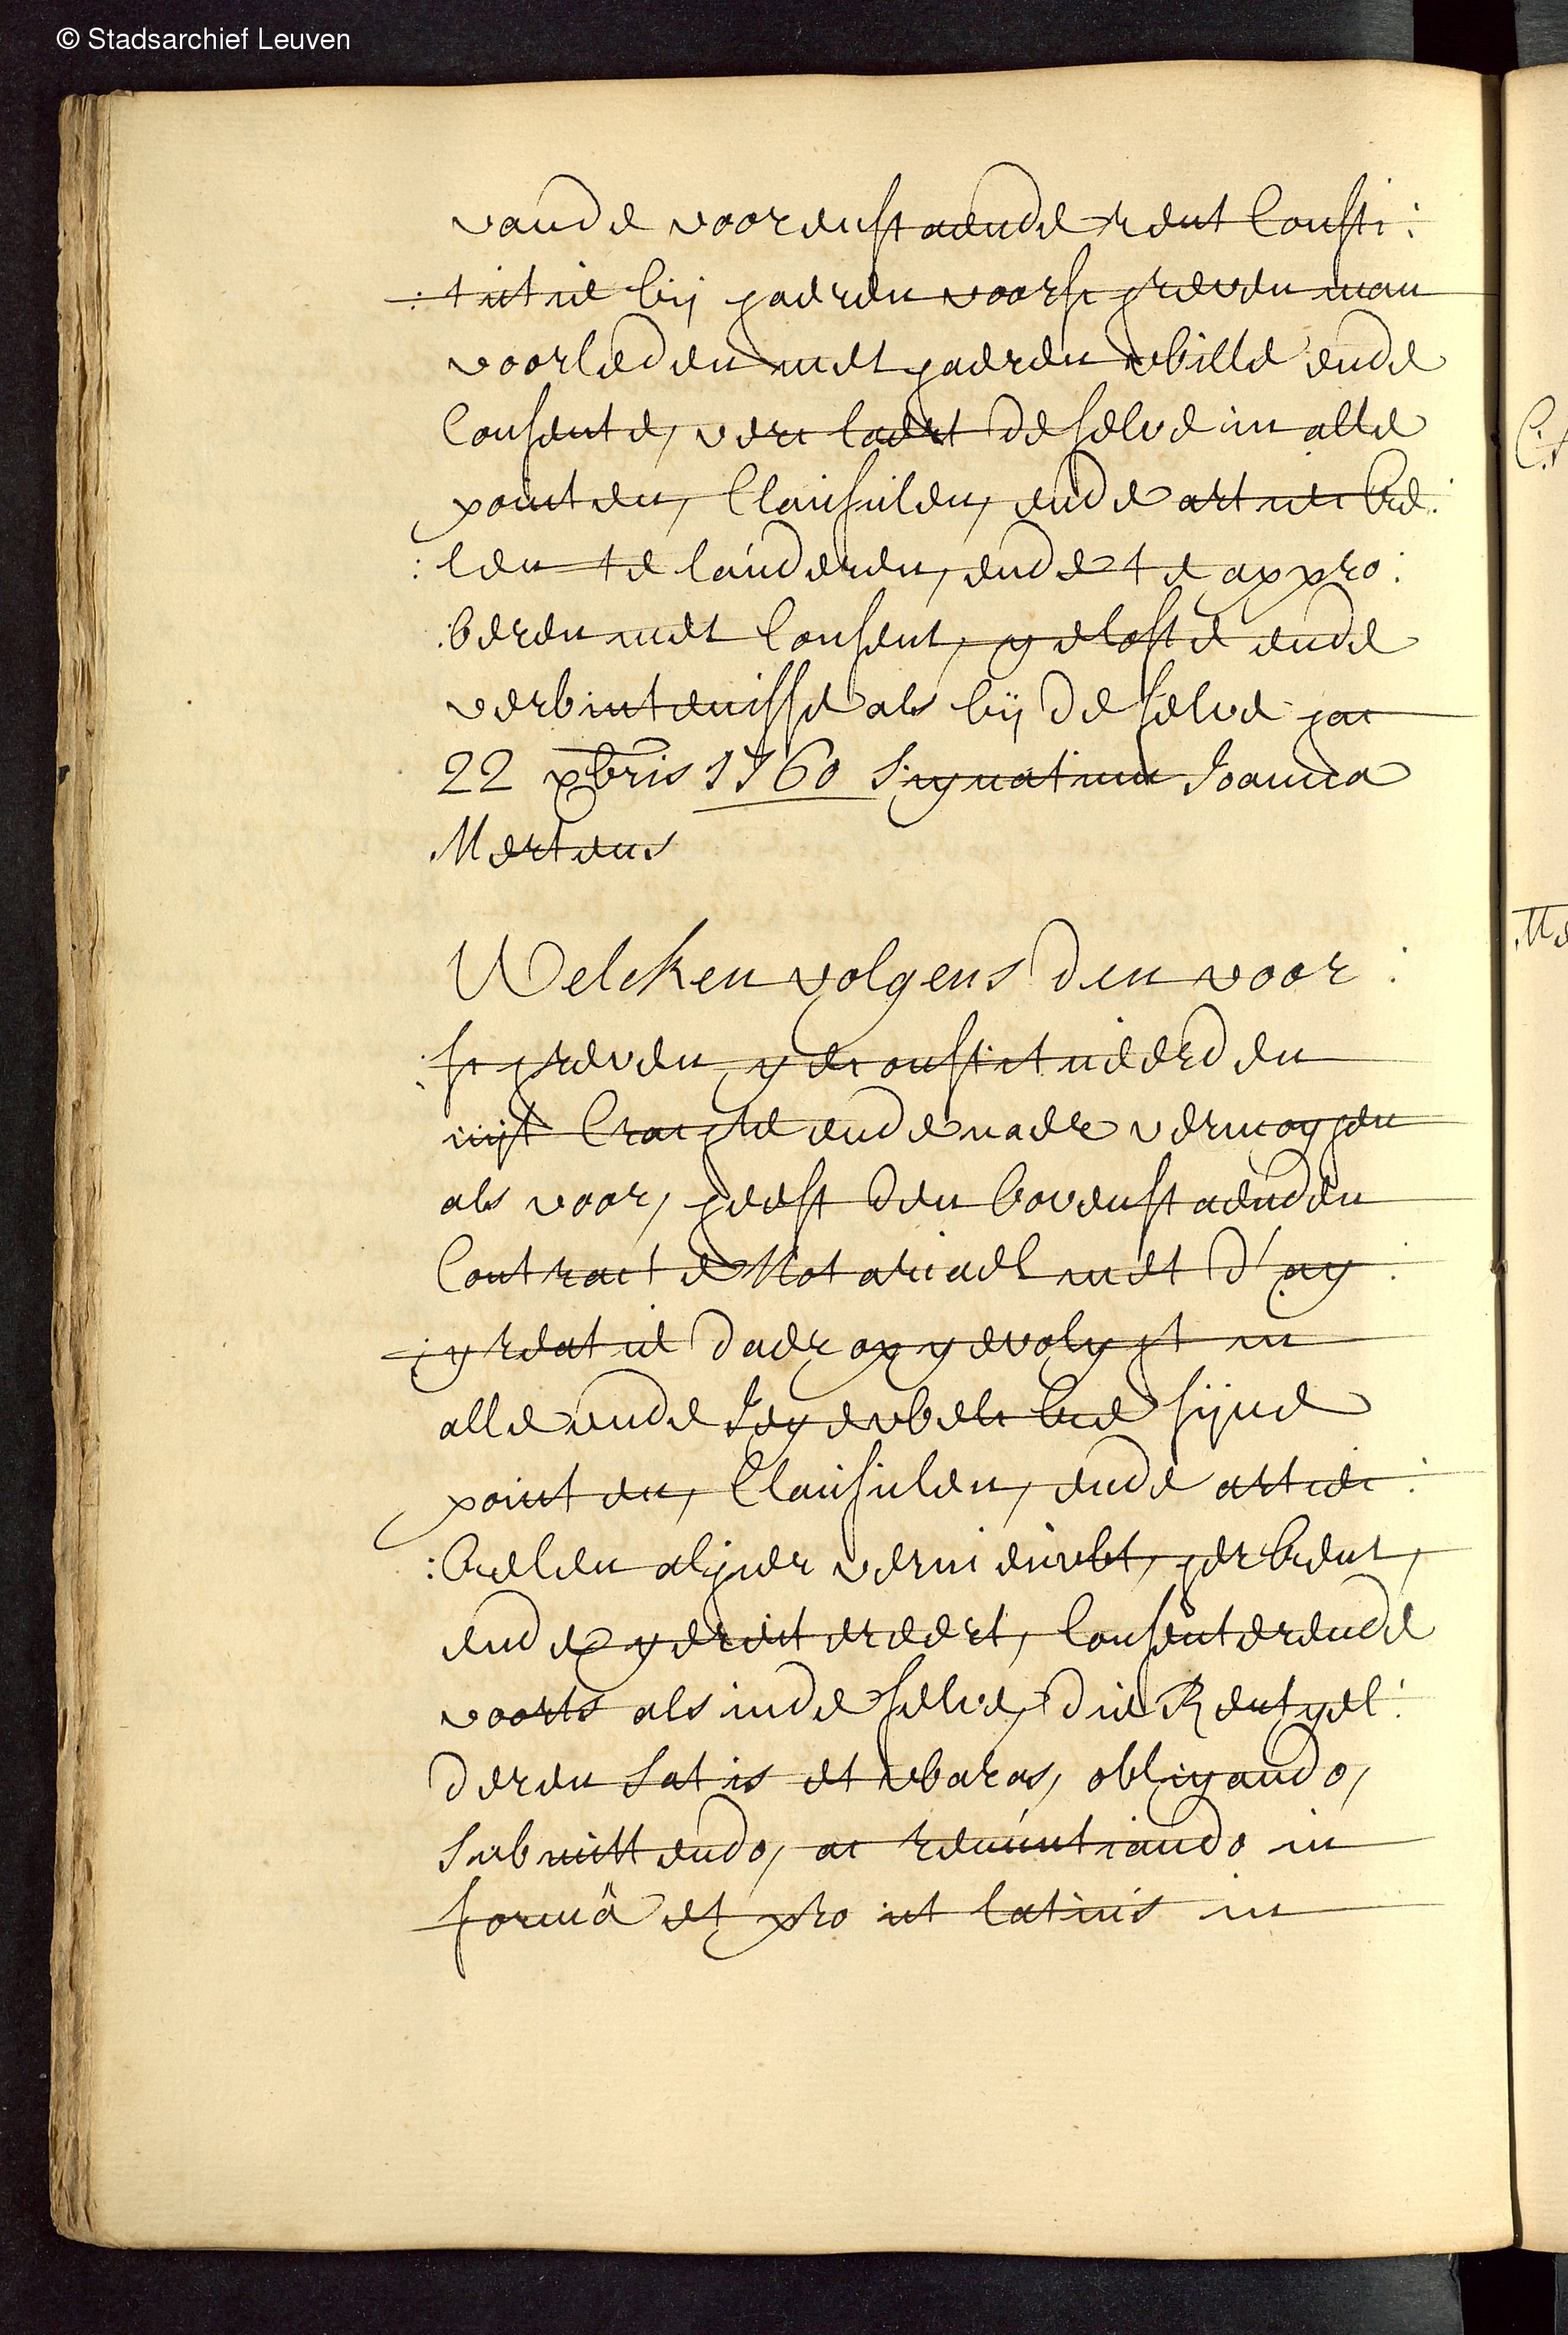 © Stadsarchief Leuven
vande voorenstaende rent consti:
:tutie bij haeren voorschreven man
voorleden met haeren wille ende
consente, verclaert de selve in alle
pointen, clausulen, ende articke:
:len te lauderen, ende te appro:
:beren met consent, gelofte ende
verbintenisse als bij de selve hac
22 xbris 1760 signatum Joanna
Mertens
Welcken volgens den voor:
:schreven geconstitueerden
uijt crachte ende naer vermoghen
als voor, heeft den bovenstaenden
contracte Notariael met d'ag:
:greatie daer op gevolght in
alle ende Jegewelcke sijne
pointen, clausulen, ende artic:
:kelen alhier vernieuwt, herkent,
ende gereitereert, consenterende
voorts als inde selve, die Rentgel:
deren satis et waras, obligando,
submittendo, ac renuntiando in
formâ et pro ut latius in